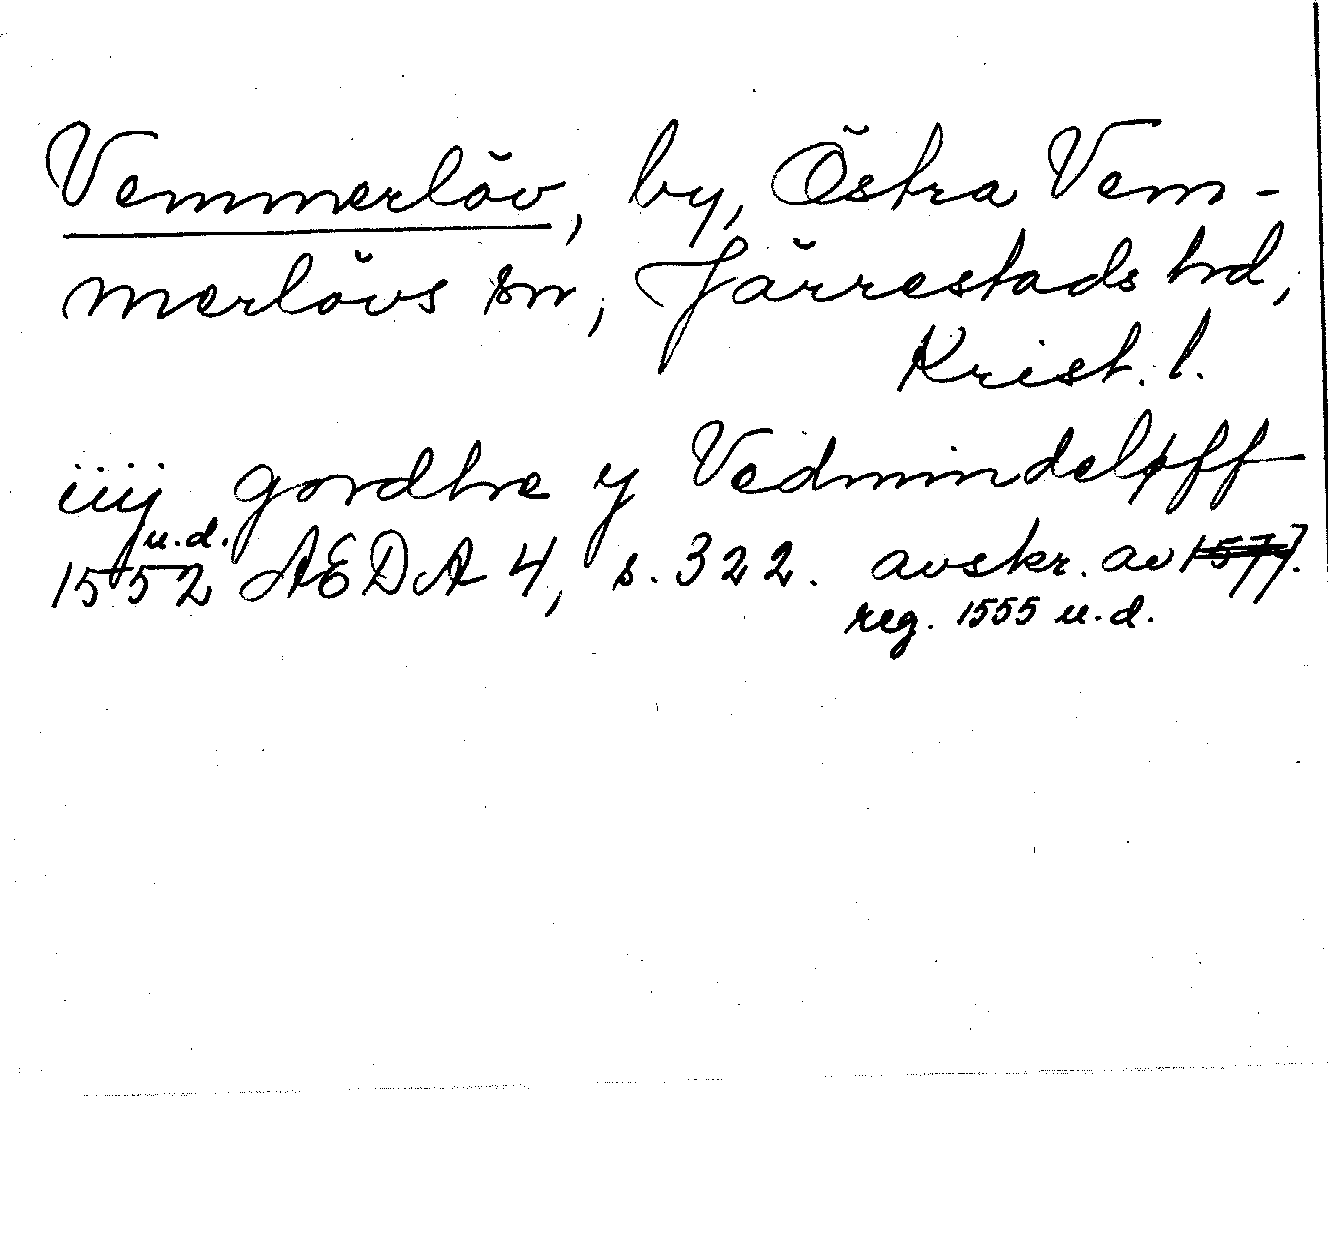 Vemmerlöv, by, Östra Vem-
merlövs sn, Järrestads hd,
Krist. l.
iiij gordhre y Vedmindeløff
u.d.
1552 AEDA 4, s. 322. avskr. av 1577.
reg. 1555 u.d.